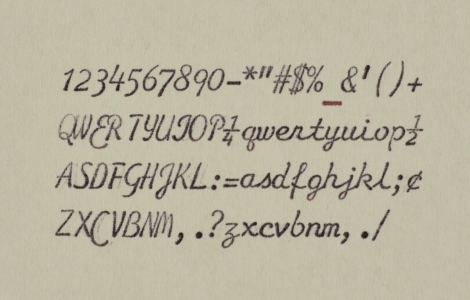 1234567890-*"#$%_&'()+
QWERTYUIOP¼qwertyuiop½
ASDFGHJKL:=asdfghjkl;¢
ZXCVBNM,.?zxcvbnm,./